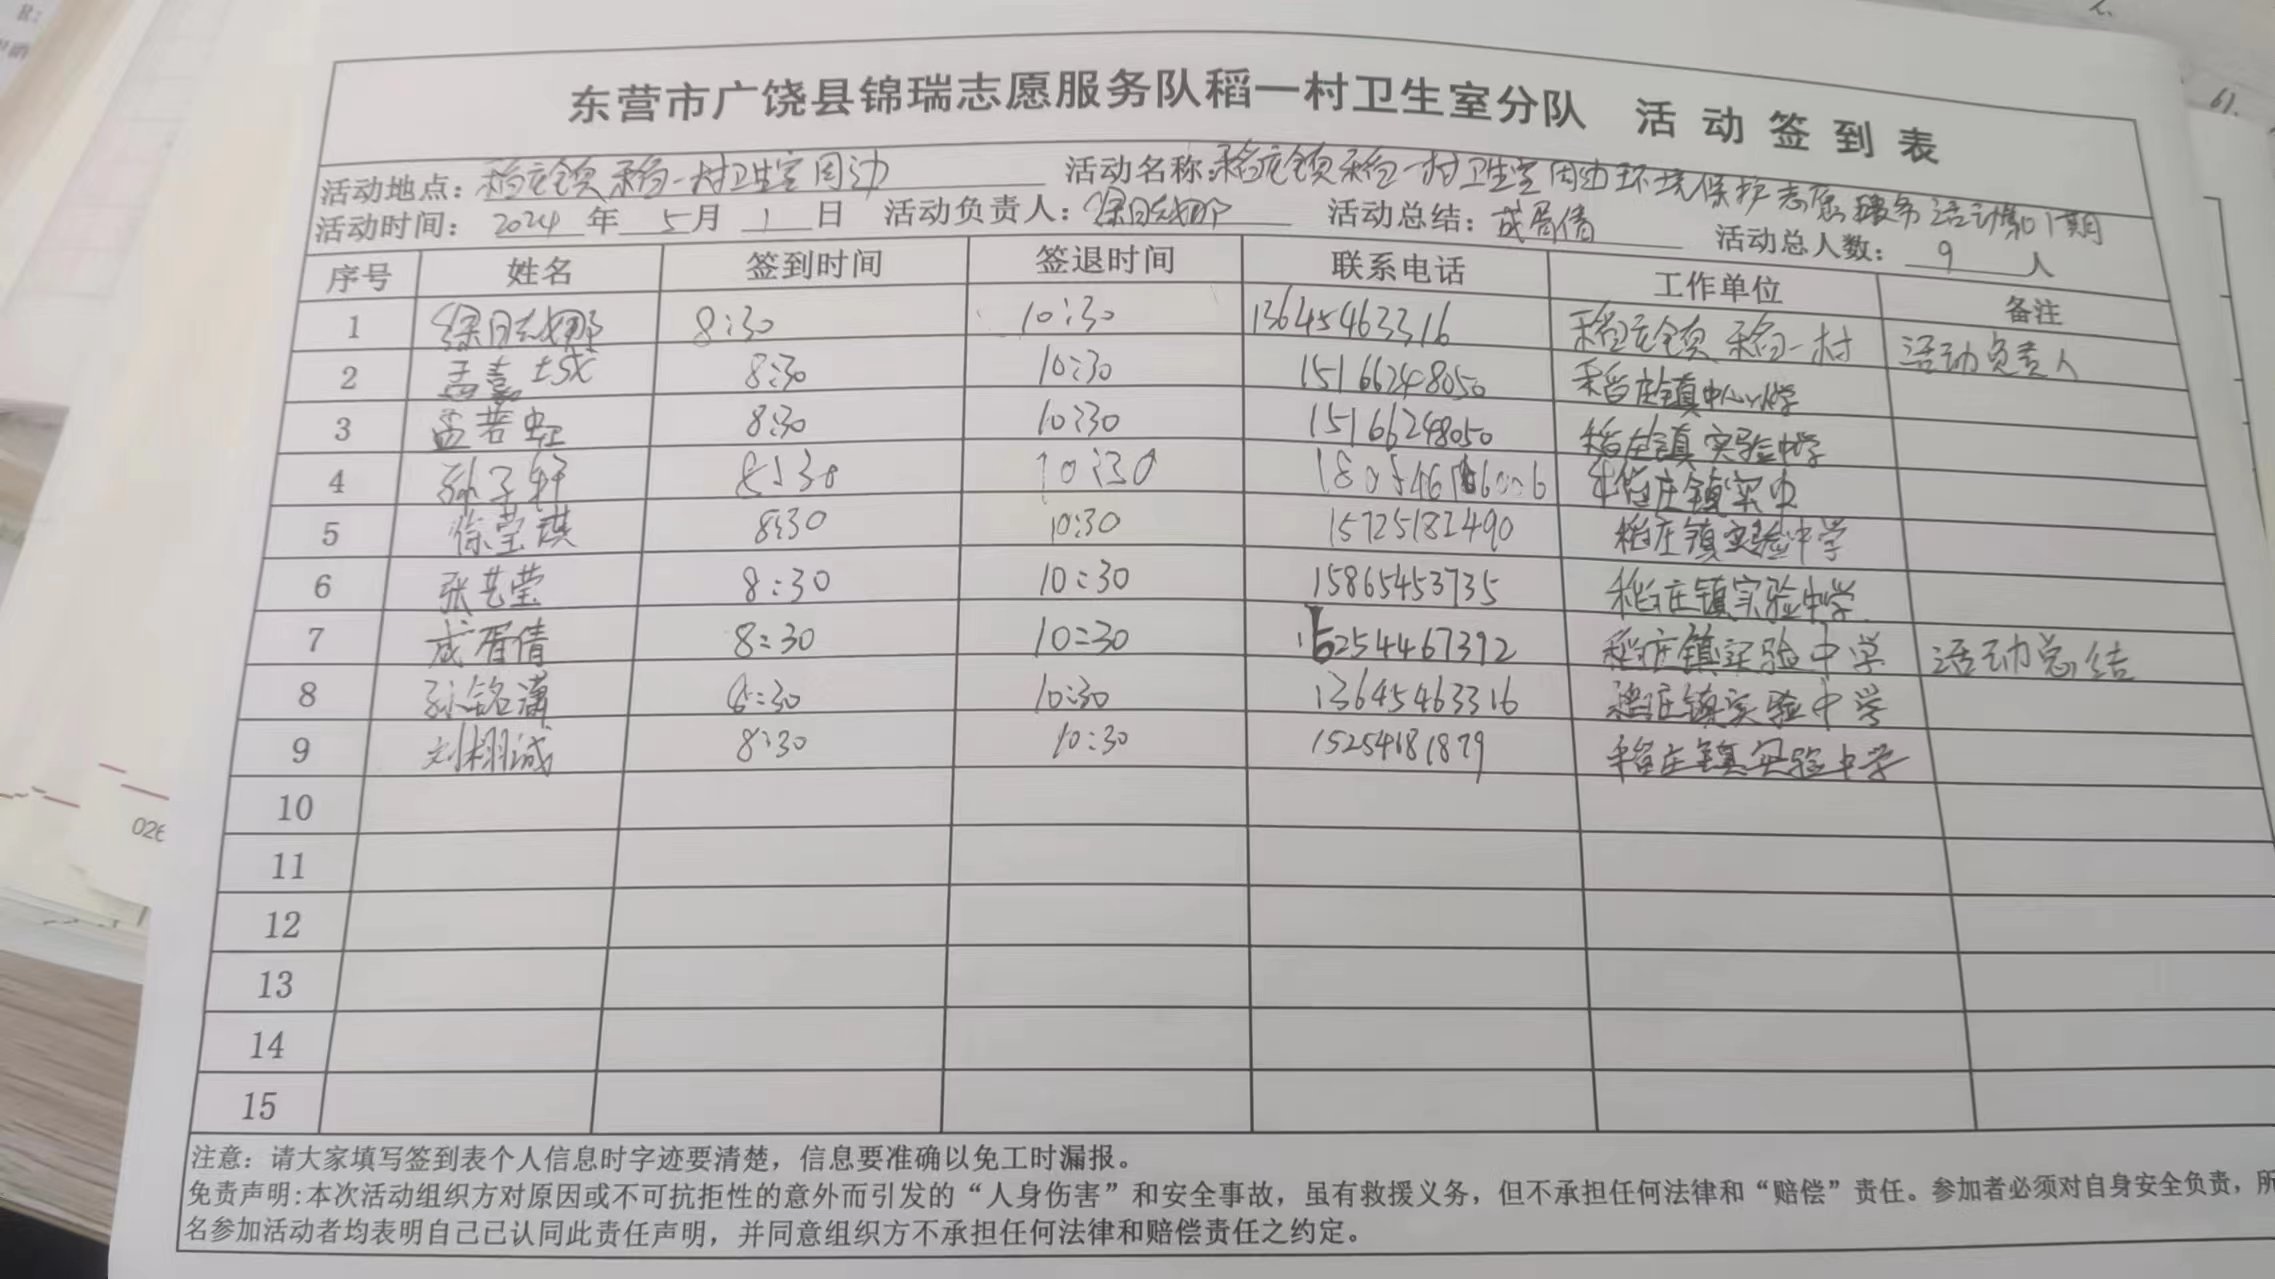 东营市广饶县锦瑞志愿服务队稻一村卫生室分队 活动签到表
活动地点：稻庄镇稻一村卫生室周边 活动名称：稻庄镇稻一村卫生室周边环境保护志愿服务活动第01期
活动时间：2024年5月1日 活动负责人： 活动总结：成胥倩 活动总人数：9人
序号 姓名 签到时间 签退时间 联系电话 工作单位 备注
1 8:30 10:30 13645463316 稻庄镇稻一村 活动负责人
2 孟嘉城 8:30 10:30 15166248050 稻庄镇中心小学
3 孟若虹 8:30 10:30 15166248050 稻庄镇实验中学
4 孙子轩 8:30 10:30 稻庄镇实中
5 徐莹琪 8:30 10:30 15725182490 稻庄镇实验中学
6 张艺莹 8:30 10:30 15865453735 稻庄镇实验中学
7 成胥倩 8:30 10:30 15254467392 稻庄镇实验中学 活动总结
8 孙铭潇 8:30 10:30 13645463316 稻庄镇实验中学
9 刘栩诚 8:30 10:30 15254681879 稻庄镇实验中学
10
11
12
13
14
15
注意：请大家填写签到表个人信息时字迹要清楚，信息要准确以免工时漏报。
免责声明:本次活动组织方对原因或不可抗拒性的意外而引发的“人身伤害”和安全事故，虽有救援义务，但不承担任何法律和“赔偿”责任。参加者必须对自身安全负责，所
名参加活动者均表明自己已认同此责任声明，并同意组织方不承担任何法律和赔偿责任之约定。
026
61.